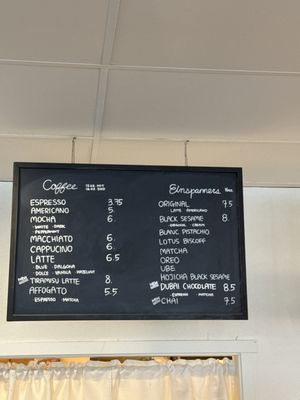 Coffee
12 oz hot
16 oz iced
ESPRESSO 3.75
AMERICANO 5.
MOCHA 6.
· WHITE · DARK
· PEPPERMINT
MACCHIATO 6.
CAPPUCINO 6.
LATTE 6.5
· BLUE · DALGONA
· DOLCE · VANILLA · HAZELNUT
TIRAMISU LATTE 8.
AFFOGATO 5.5
· ESPRESSO · MATCHA
Einspanners
ORIGINAL 7.5
LATTE AMERICANO
BLACK SESAME 8.
ORIGINAL CREAM
BLANC PISTACHIO
LOTUS BISCOFF
MATCHA
OREO
UBE
HOJICHA BLACK SESAME
DUBAI CHOCOLATE 8.5
ESPRESSO · MATCHA
CHAI 7.5